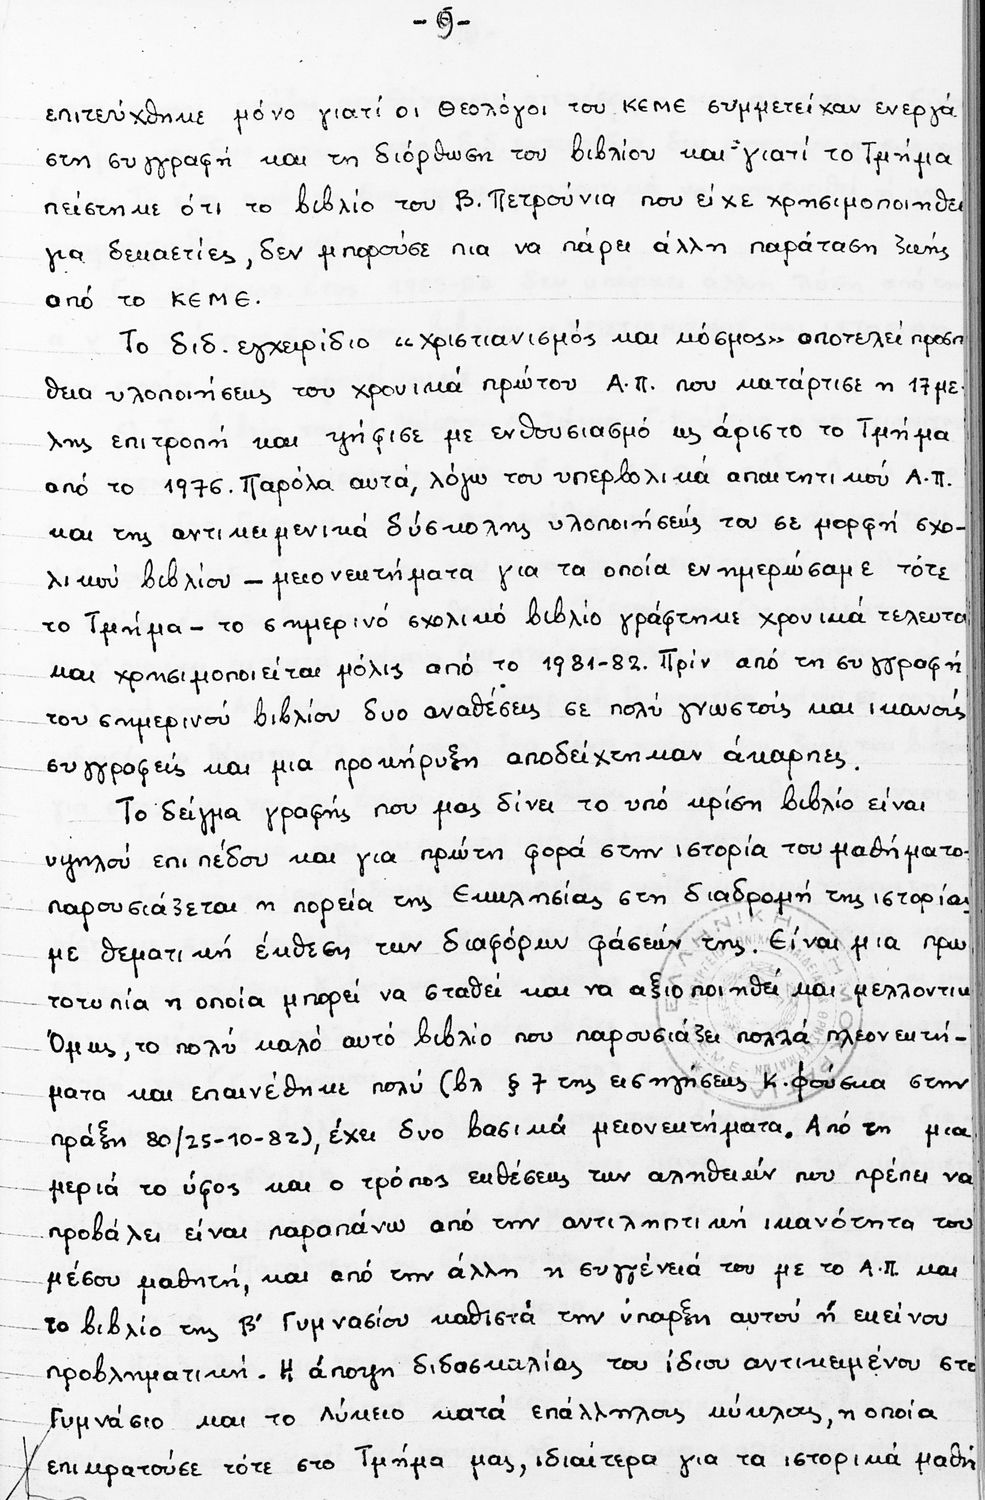 -9-
επιτεύχθηκε μόνο γιατί οι Θεολόγοι του ΚΕΜΕ συμμετείχαν ενεργά
στη συγγραφή και τη διόρθωση του βιβλίου και γιατί το Τμήμα
πείστηκε ότι το βιβλίο του Β. Πετρούνια που είχε χρησιμοποιηθεί
για δεκαετίες, δεν μπορούσε πια να πάρει άλλη παράταση ζωής
από το ΚΕΜΕ.
Το διδ. εγχειρίδιο «Χριστιανισμός και κόσμος» αποτελεί προσπ
θεια υλοποιήσεως του χρονικά πρώτου Α.Π. που κατάρτισε η 17με-
λης επιτροπή και ψήφισε με ενθουσιασμό ως άριστο το Τμήμα
από το 1976. Παρόλα αυτά, λόγω του υπερβολικά απαιτητικού Α.Π.
και της αντικειμενικά δύσκολης υλοποιήσεώς του σε μορφή σχο-
λικού βιβλίου – μειονεκτήματα για τα οποία ενημερώσαμε τότε
το Τμήμα – το σημερινό σχολικό βιβλίο γράφτηκε χρονικά τελευτα
και χρησιμοποιείται μόλις από το 1981-82. Πρίν από τη συγγραφή
του σημερινού βιβλίου δυο αναθέσεις σε πολύ γνωστούς και ικανούς
συγγραφείς και μια προκήρυξη αποδείχτηκαν άκαρπες.
Το δείγμα γραφής που μας δίνει το υπό κρίση βιβλίο είναι
υψηλού επιπέδου και για πρώτη φορά στην ιστορία του μαθήματο-
παρουσιάζεται η πορεία της Εκκλησίας στη διαδρομή της ιστορίας
με θεματική έκθεση των διαφόρων φάσεών της. Είναι μια πρω
τοτυπία η οποία μπορεί να σταθεί και να αξιοποιηθεί και μελλοντικ
Όμως, το πολύ καλό αυτό βιβλίο που παρουσιάζει πολλά πλεονεκτή-
ματα και επαινέθηκε πολύ (βλ § 7 της εισηγήσεως Κ. Φούσκα στην
πράξη 80/25-10-82), έχει δυο βασικά μειονεκτήματα. Από τη μια
μεριά το ύφος και ο τρόπος εκθέσεως των αληθειών που πρέπει να
προβάλει είναι παραπάνω από την αντιληπτική ικανότητα του
μέσου μαθητή, και από την άλλη η συγγένειά του με το Α.Π. και
το βιβλίο της Β' Γυμνασίου καθιστά την ύπαρξη αυτού ή εκείνου
προβληματική. Η άποψη διδασκαλίας του ίδιου αντικειμένου στο
Γυμνάσιο και το Λύκειο κατά επάλληλους κύκλους, η οποία
επικρατούσε τότε στο Τμήμα μας, ιδιαίτερα για τα ιστορικά μαθή